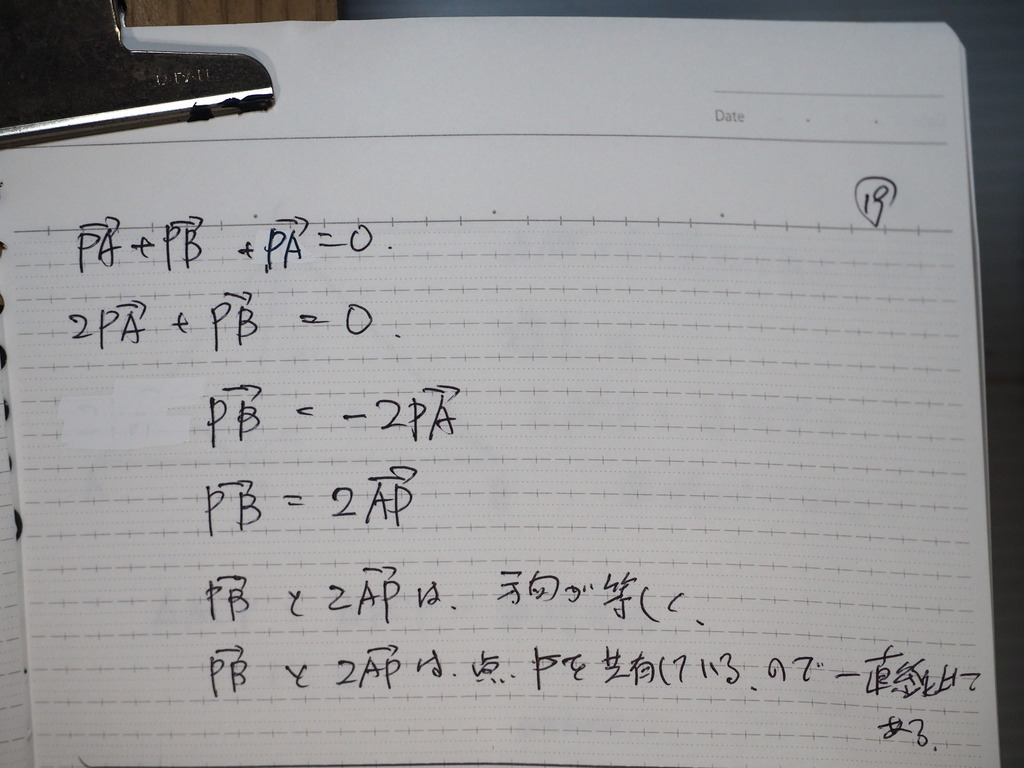 Date
19
PA + PB + PA = 0.
2PA + PB = 0.
PB = -2PA
PB = 2AP
PB と 2AP は、方向が等しく、
PB と 2AP は、点、Pを共有している、ので一直線上に
ある。